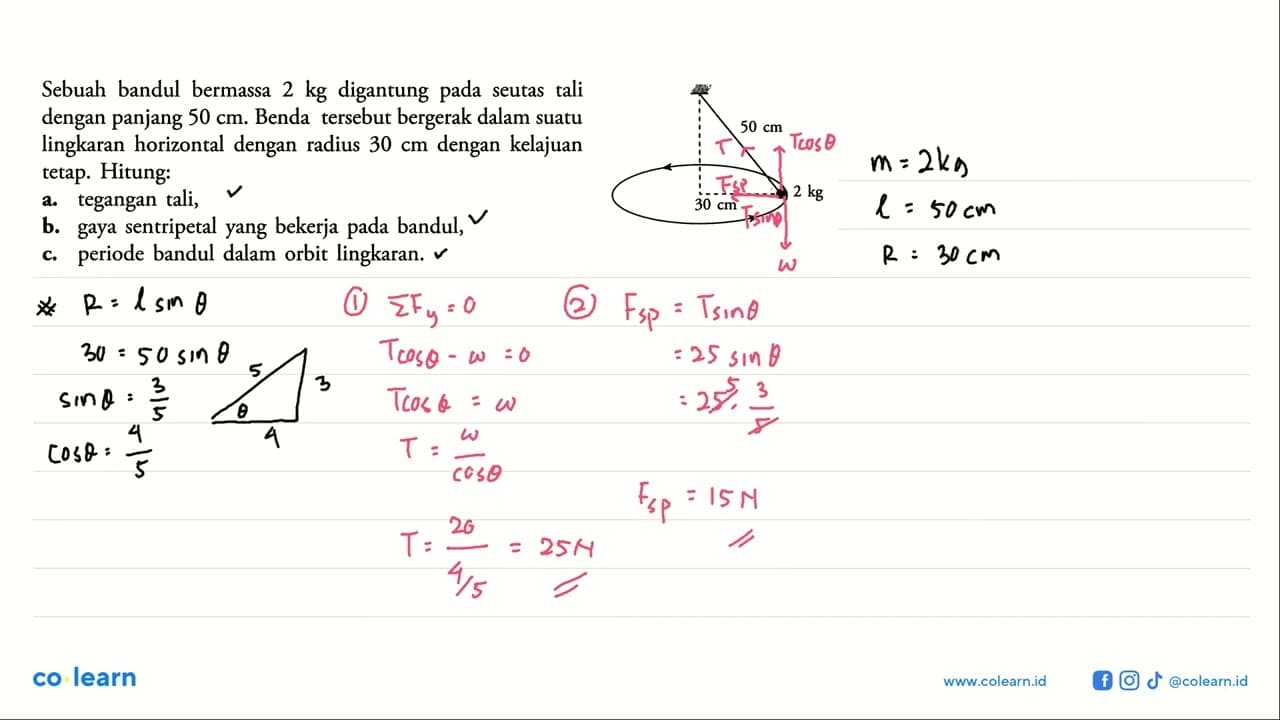 Sebuah bandul bermassa 2 kg digantung pada seutas tali
dengan panjang 50 cm. Benda tersebut bergerak dalam suatu
lingkaran horizontal dengan radius 30 cm dengan kelajuan
tetap. Hitung:
a. tegangan tali, ✓
b. gaya sentripetal yang bekerja pada bandul, ✓
c. periode bandul dalam orbit lingkaran. ✓
50 cm
T
Tcosθ
Fsp
2 kg
30 cm
Tsinθ
w
m = 2kg
l = 50 cm
R = 30 cm
* R = l sin θ
30 = 50 sin θ
sinθ = 3/5
cosθ = 4/5
5
3
θ
4
① ΣFy = 0
Tcosθ - w = 0
Tcosθ = w
T = w/cosθ
T = 20/4/5 = 25N
② Fsp = Tsinθ
= 25 sin θ
= 25 5 . 3/5
Fsp = 15 N
co·learn
www.colearn.id
@colearn.id